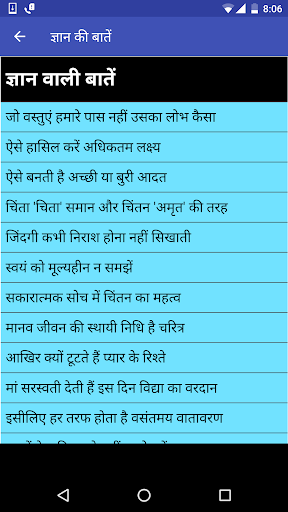 8:06
ज्ञान की बातें
ज्ञान वाली बातें
जो वस्तुएं हमारे पास नहीं उसका लोभ कैसा
ऐसे हासिल करें अधिकतम लक्ष्य
ऐसे बनती है अच्छी या बुरी आदत
चिंता 'चिता' समान और चिंतन 'अमृत' की तरह
जिंदगी कभी निराश होना नहीं सिखाती
स्वयं को मूल्यहीन न समझें
सकारात्मक सोच में चिंतन का महत्व
मानव जीवन की स्थायी निधि है चरित्र
आखिर क्यों टूटते हैं प्यार के रिश्ते
मां सरस्वती देती हैं इस दिन विद्या का वरदान
इसीलिए हर तरफ होता है वसंतमय वातावरण